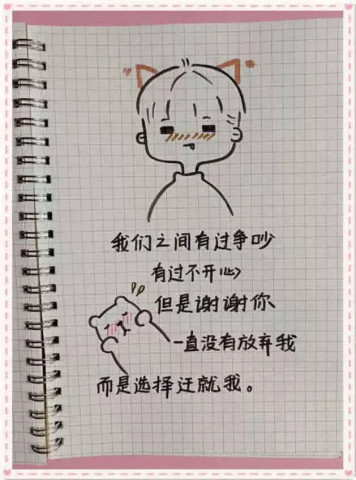 我们之间有过争吵
有过不开心
但是谢谢你
一直没有放弃我
而是选择迁就我。